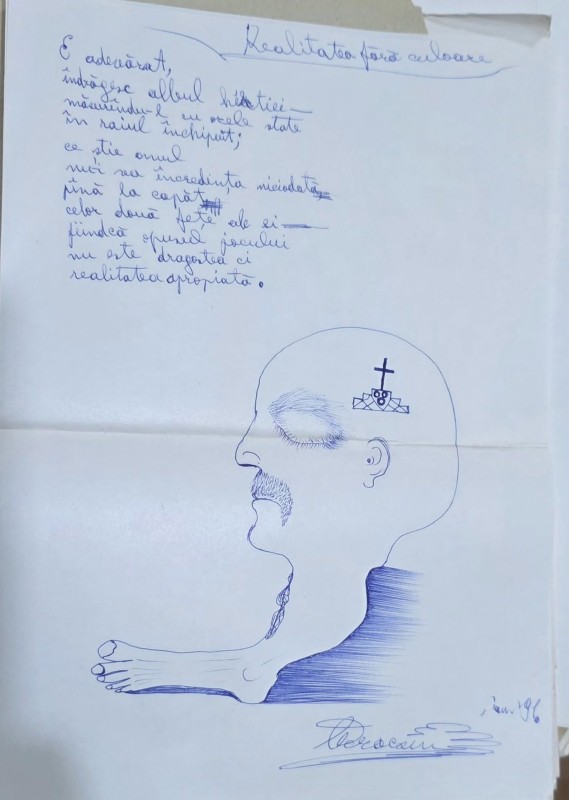 Realitatea fără culoare
E adevărat,
îndrăgesc albul hîrtiei—
măsurîndu-l cu orele state
în raiul închipuit;
ce știe omul
nu-i va încredința niciodată
pînă la capăt
celor două fețe ale ei—
fiindcă opusul jocului
nu este dragostea ci
realitatea apropiată.
ian '96